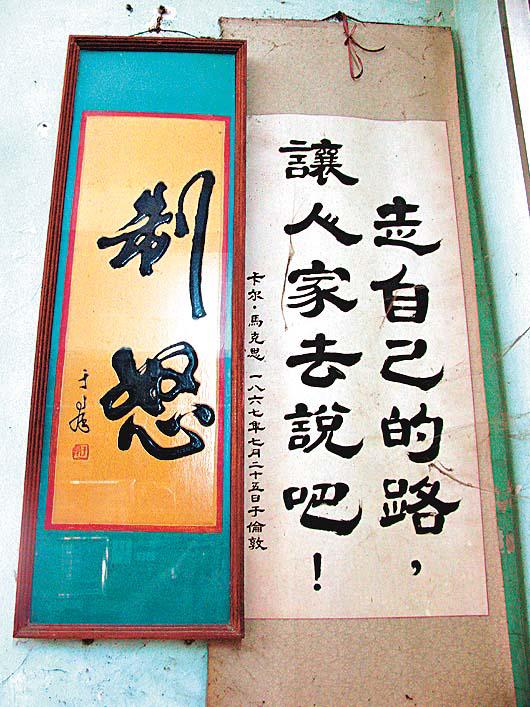 走自己的路，
讓人家去說吧！
卡尔·馬克思 一八六七年七月二十五日于倫敦
制怒